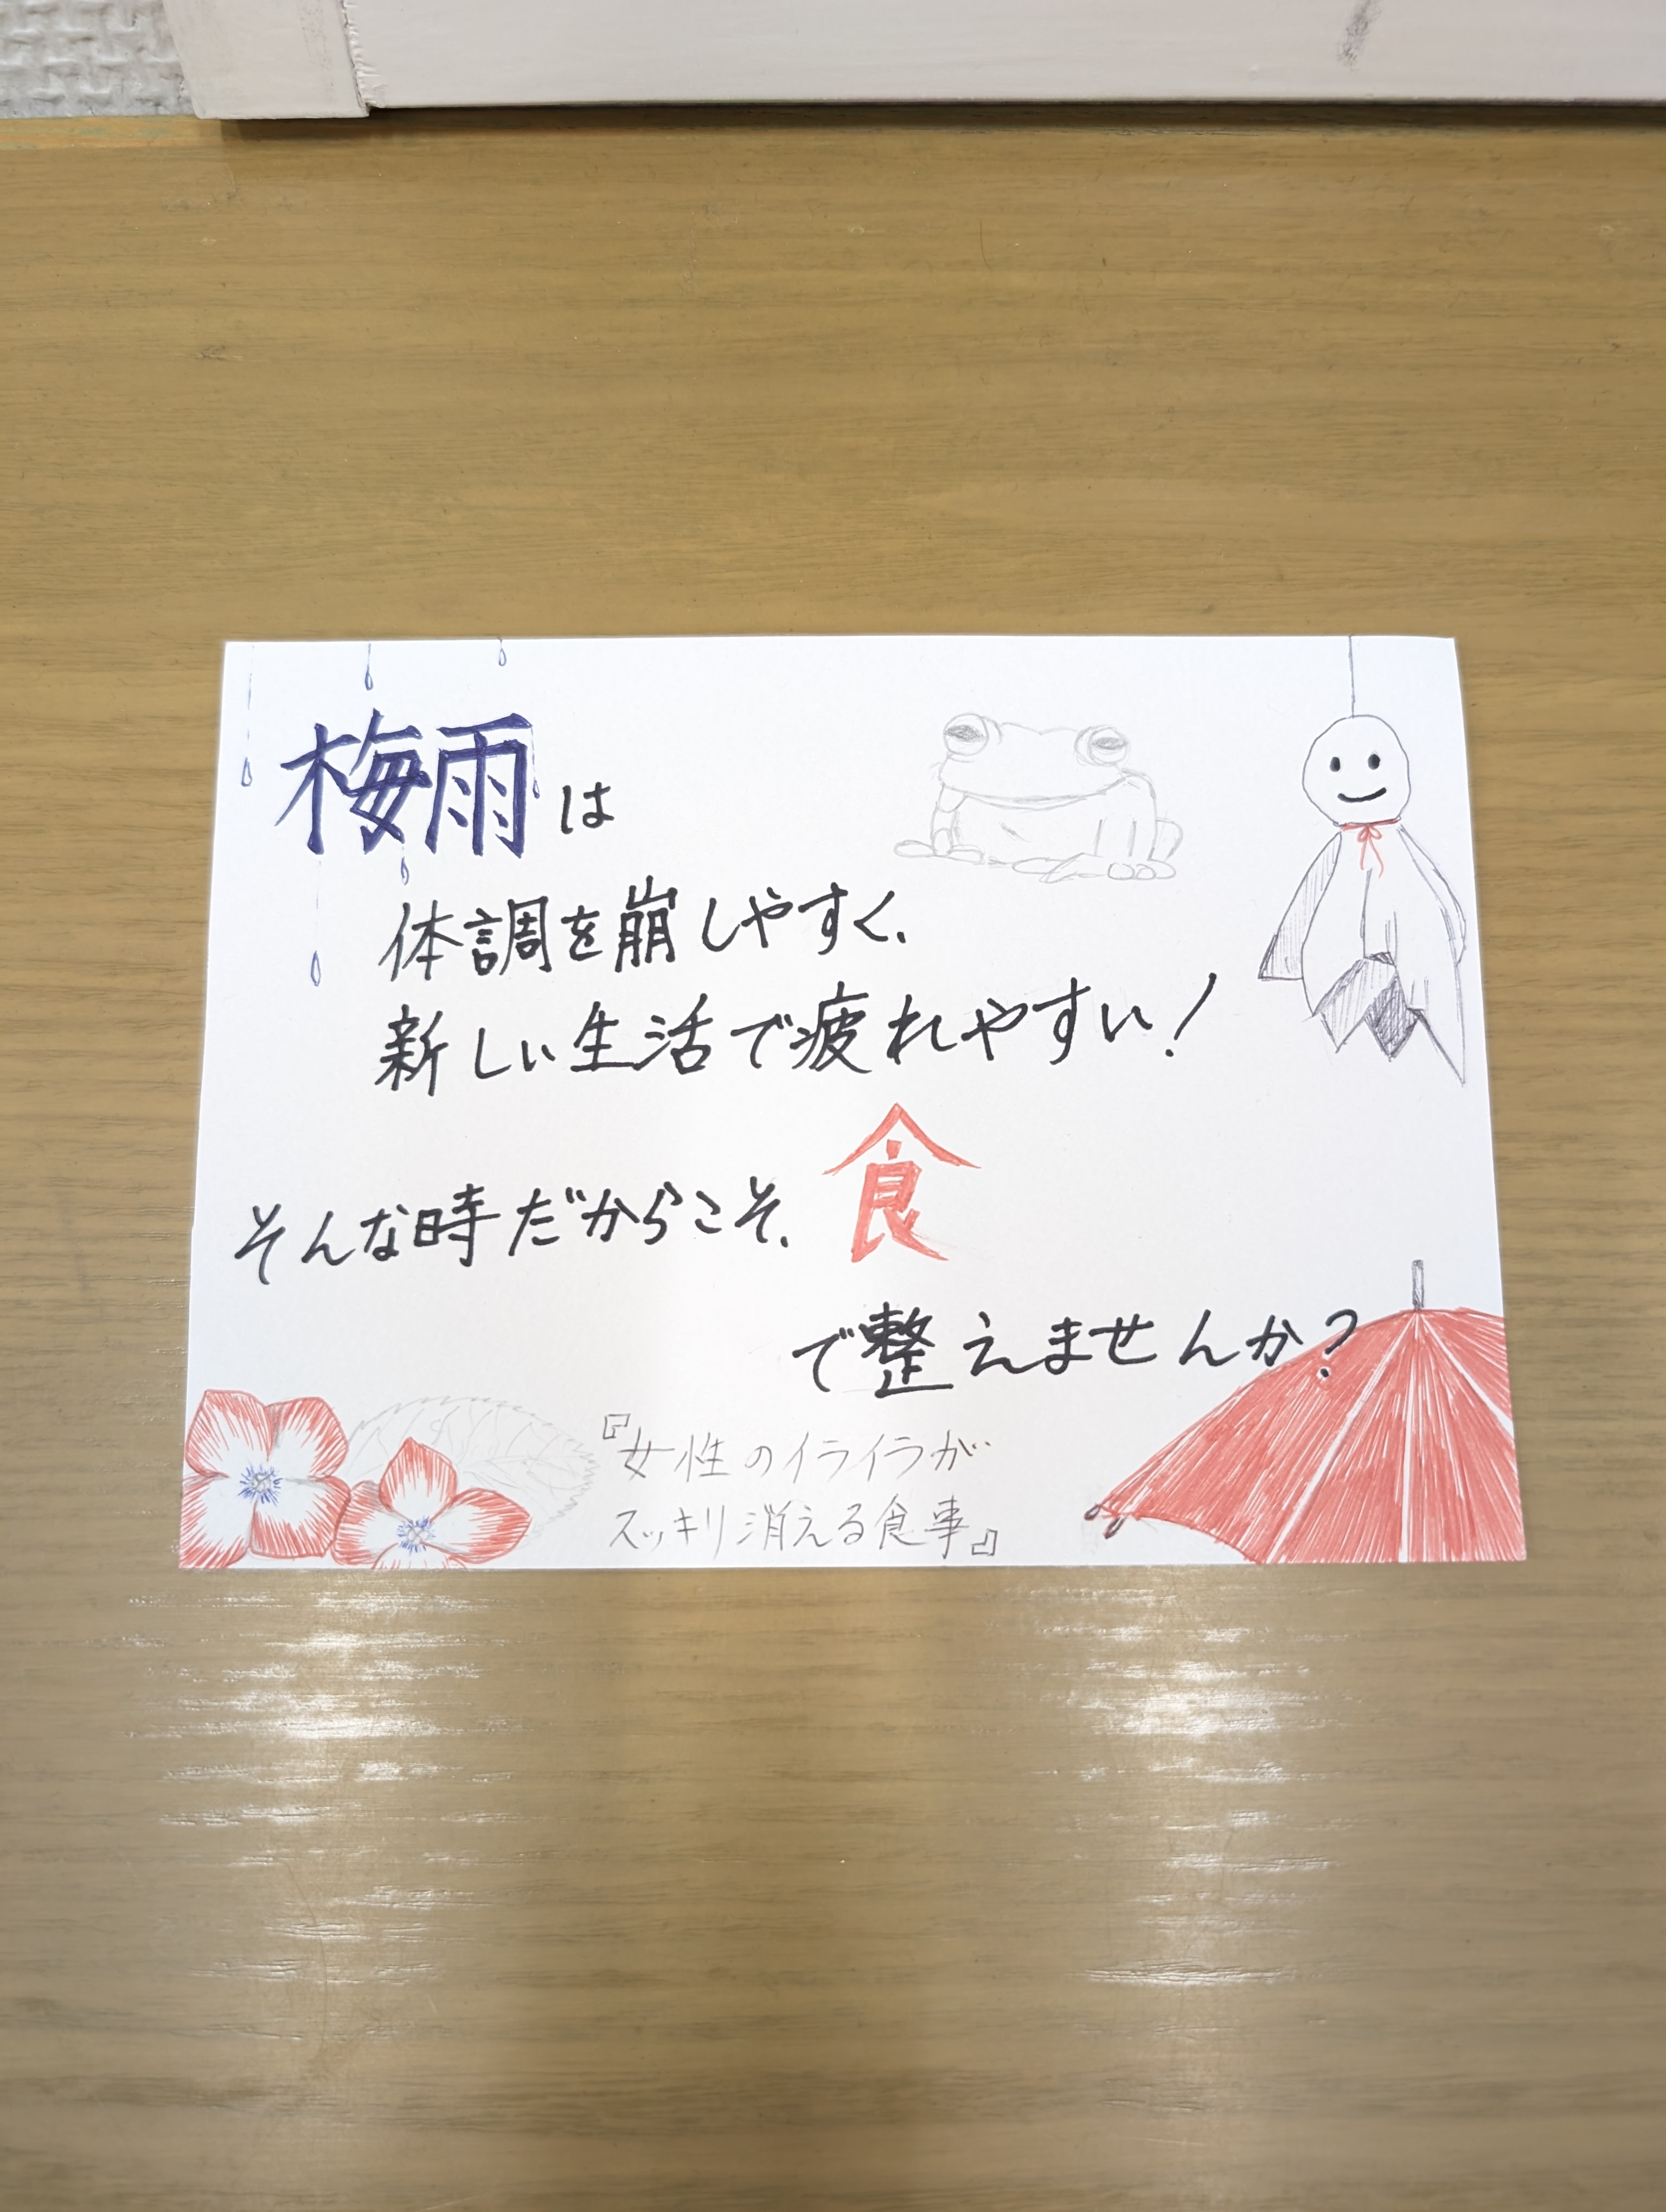 梅雨は
体調を崩しやすく、
新しい生活で疲れやすい！
そんな時だからこそ、食
で整えませんか？
『女性のイライラが
スッキリ消える食事』